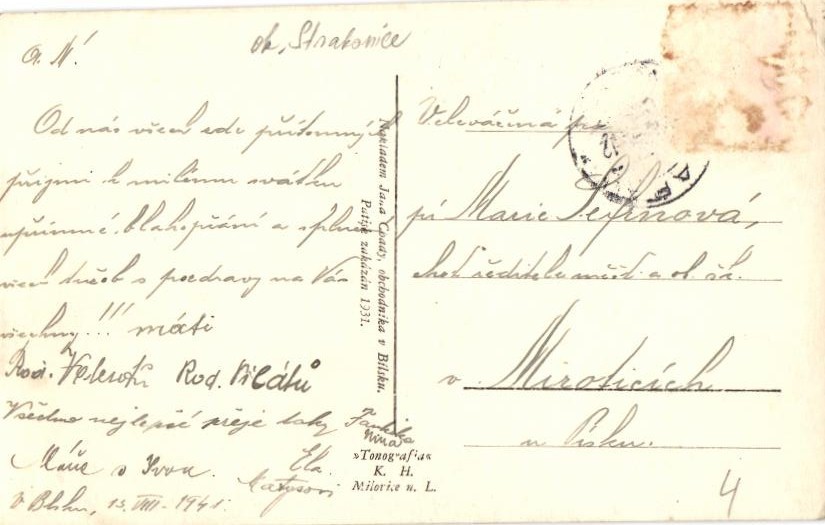 ok. Strakonice
Od nás všech zde přítomných
přijmi k milému svátku
upřímné blahopřání a splnění
všech tužeb s pozdravy na Vás
všechny!!! máti
Rod. Rod. Pilátů
Všechno nejlepší přeje taky
Nina
Máňa s Ivou. Ela
V Blsku, 13. VIII. 1941.
Nákladem Jana Čpady, obchodníka v Bílsku.
Patisk zakázán 1931.
»Tonografia«
K. H.
Milovice n. L.
Velevážená
pí Marie
choť ředitele měšť. a ob. šk.
v Miroticích
u Písku.
4